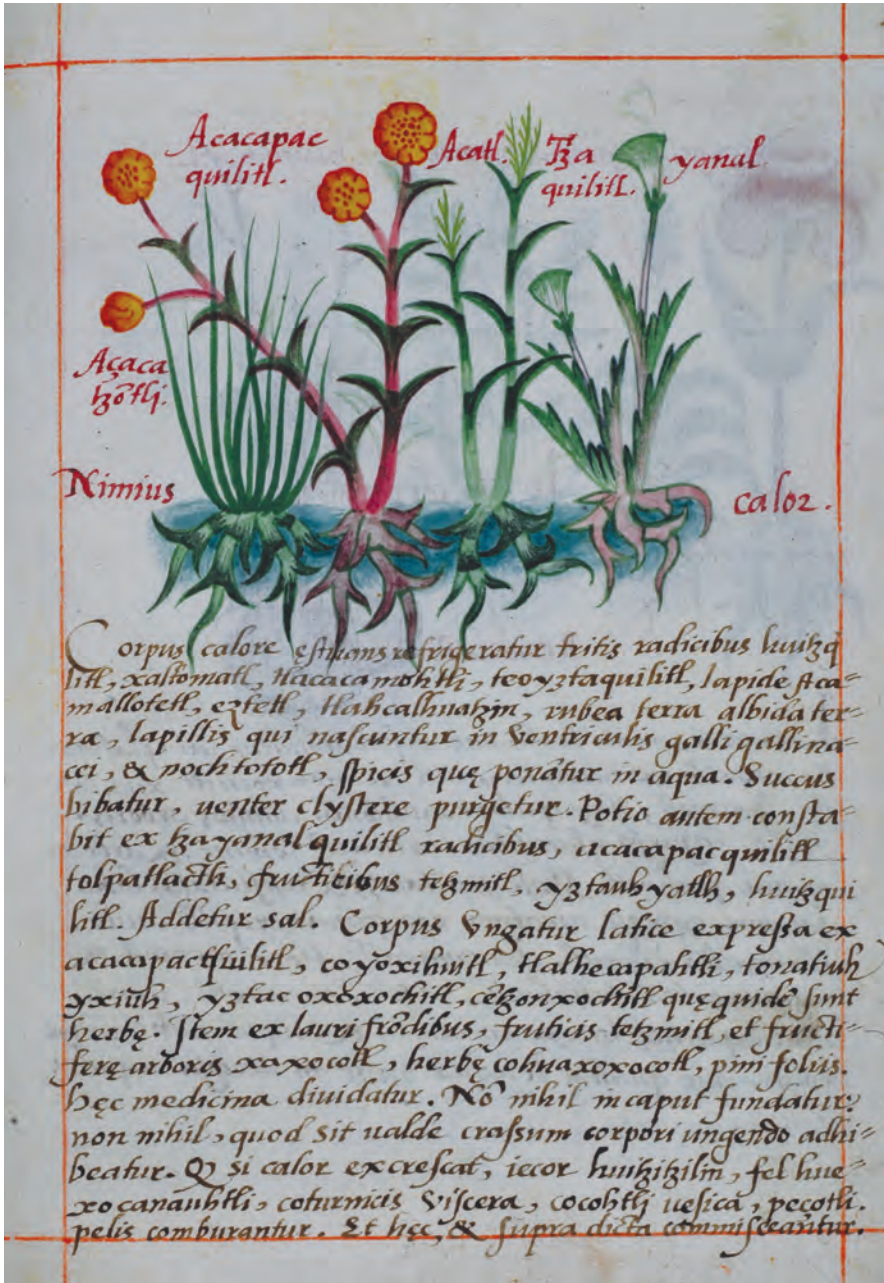 Acacapac
quilitl.
Acatl.
Tza
quilitl.
yanal
Açaca
tzōtli.
Nimius
calor.
Corpus calore ęstuans refrigeratur tritis radicibus huitzq̄
litl, xaltomatl, tlacacamohtli, teoyztaquilitl, lapide
mallotetl, eztetl, tlahcalhuatzin, rubea terra albida ter=
ra, lapillis qui nascuntur in ventriculis galli gallina=
cei, & nochtototl, spicis quę ponātur in aqua. Succus
bibatur, venter clystere purgetur. Potio autem consta=
bit ex tzayanalquilitl radicibus, acacapacquilitl
tolpatlactli, fruticibus tetzmitl, yztauhyatlh, huitzqui
litl. Addetur sal. Corpus Vngatur latice expressa ex
coyoxihuitl, tlalhecapahtli, tonatiuh
yxiuh, yztac oxoxochitl, cētzonxochitl quęquidē sunt
herbę. Item ex lauri frōdibus, fruticis tetzmitl, et fructi=
ferę arboris xaxocotl, herbę cohuaxoxocotl, pini foliis.
hęc medicina diuidatur. Nō nihil in caput fundatur:
non nihil, quod sit ualde crassum corpori ungendo adhi=
beatur. Q̄ si calor excrescat, iecor huitzitzilin, fel hue=
xocanauhtli, coturnicis viscera, cocohtli uesica, peçotli.
pelis comburantur. Et hęc, & supra dicta commisceantur.